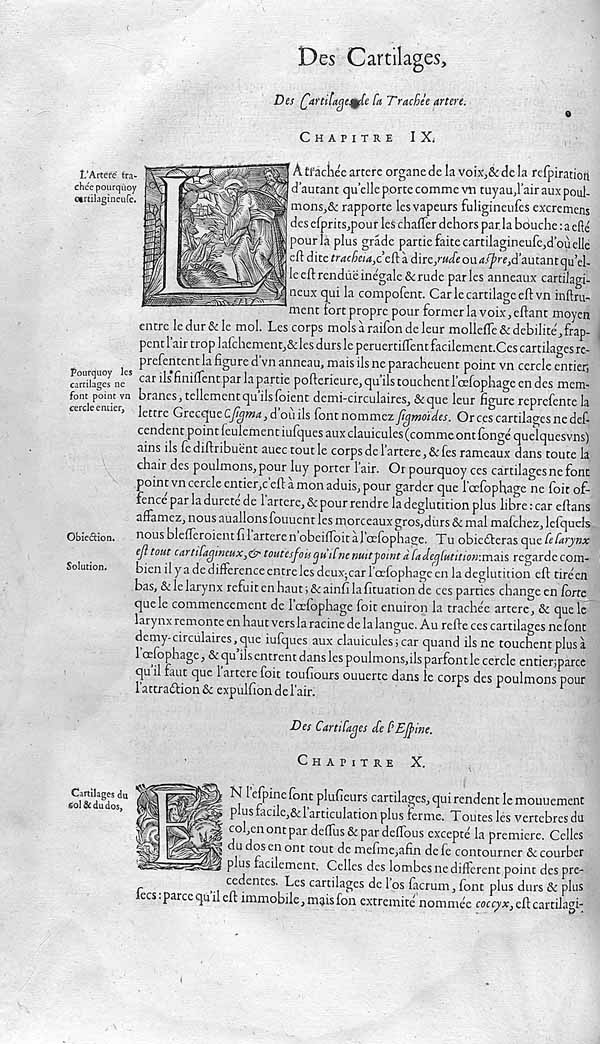 Des Cartilages,
Des Cartilages de la Trachée artere.
CHAPITRE IX.
L'Artere tra-
chée pourquoy
cartilagineuse.
LA trachée artere organe de la voix,& de la respiration
d'autant qu'elle porte comme vn tuyau,l'air aux poul-
mons,& rapporte les vapeurs fuligineuses excremens
des esprits,pour les chasser dehors par la bouche: a esté
pour la plus grãde partie faite cartilagineuse,d'où elle
est dite tracheia,c'est à dire, rude ou aspre, d'autant qu'el-
le est renduë inégale & rude par les anneaux cartilagi-
neux qui la composent. Car le cartilage est vn instru-
ment fort propre pour former la voix, estant moyen
entre le dur & le mol. Les corps mols à raison de leur mollesse & debilité, frap-
pent l'air trop laschement,& les durs le peruertissent facilement.Ces cartilages re-
presentent la figure d'vn anneau, mais ils ne paracheuent point vn cercle entier;
Pourquoy les
cartilages ne
font point vn
cercle entier,
car ils finissent par la partie posterieure, qu'ils touchent l'œsophage en des mem-
branes, tellement qu'ils soient demi-circulaires, & que leur figure represente la
lettre Grecque C sigma, d'où ils sont nommez sigmoides. Or ces cartilages ne des-
cendent point seulement iusques aux clauicules (comme ont songé quelquesvns)
ains ils se distribuënt auec tout le corps de l'artere, & ses rameaux dans toute la
chair des poulmons, pour luy porter l'air. Or pourquoy ces cartilages ne font
point vn cercle entier,c'est à mon aduis, pour garder que l'œsophage ne soit of-
fencé par la dureté de l'artere, & pour rendre la deglutition plus libre: car estans
affamez, nous auallons souuent les morceaux gros,durs & mal maschez, lesquels
Obiection.
nous blesseroient si l'artere n'obeissoit à l'œsophage. Tu obiecteras que le larynx
est tout cartilagineux,& toutesfois qu'il ne nuit point à la deglutition:mais regarde com-
Solution.
bien il y a de difference entre les deux;car l'œsophage en la deglutition est tiré en
bas, & le larynx refuit en haut; & ainsi la situation de ces parties change en sorte
que le commencement de l'œsophage soit enuiron la trachée artere, & que le
larynx remonte en haut vers la racine de la langue. Au reste ces cartilages ne sont
demy-circulaires, que iusques aux clauicules; car quand ils ne touchent plus à
l'œsophage, & qu'ils entrent dans les poulmons,ils parfont le cercle entier;parce
qu'il faut que l'artere soit tousiours ouuerte dans le corps des poulmons pour
l'attraction & expulsion de l'air.
Des Cartilages de l'Espine.
CHAPITRE X.
Cartilages du
col & du dos,
EN l'espine sont plusieurs cartilages, qui rendent le mouuement
plus facile,& l'articulation plus ferme. Toutes les vertebres du
col,en ont par dessus & par dessous excepté la premiere. Celles
du dos en ont tout de mesme,afin de se contourner & courber
plus facilement. Celles des lombes ne different point des pre-
cedentes. Les cartilages de l'os sacrum, sont plus durs & plus
secs : parce qu'il est immobile, mais son extremité nommée coccyx, est cartilagi-